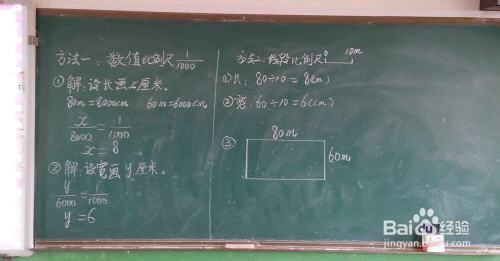 方法一：数值比例尺 1/1000
①解：设长画x厘米。
80m=8000cm 60m=6000cm
x/8000=1/1000
x=8
②解：设宽画y厘米。
y/6000=1/1000
y=6
方法二：线段比例尺 0 10m
①长：80÷10=8(cm)
②宽：60÷10=6(cm)
③
80m
60m
Baidu经验
jingyan.baidu.com